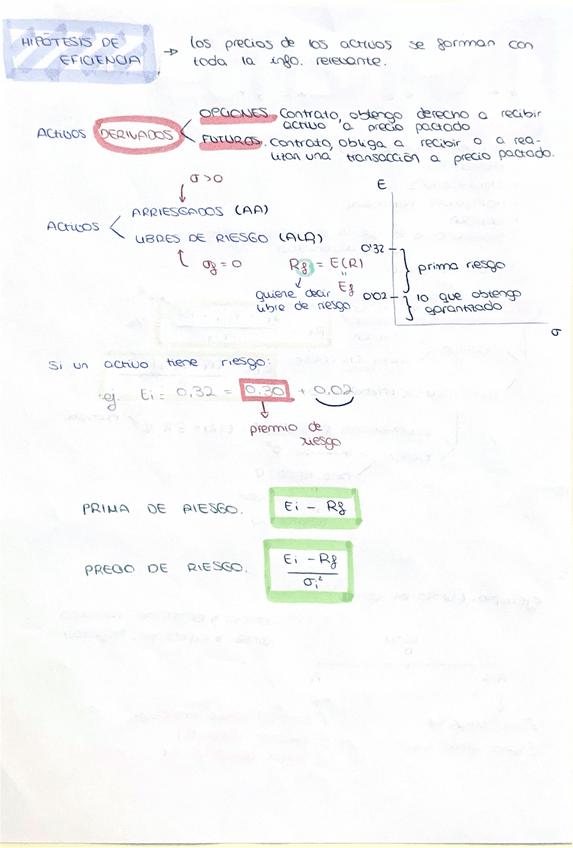 HIPÓTESIS DE EFICIENCIA → los precios de los activos se forman con
toda la info. relevante.
ACTIVOS DERIVADOS
OPCIONES. Contrato, obtengo derecho a recibir
activo a precio pactado
FUTUROS. Contrato, obliga a recibir o a rea-
lizar una transacción a precio pactado.
σ>0
ACTIVOS
ARRIESGADOS (AA)
LIBRES DE RIESGO (ALR)
σf = 0
Rf = E(R)
"
Ef
quiere decir
libre de riesgo
E
0'32
prima riesgo
0'02
lo que obtengo
garantizado
σ
Si un activo tiene riesgo:
ej. Ei = 0,32 = 0,30 + 0,02
premio de
riesgo
PRIMA DE RIESGO. Ei - Rf
PRECIO DE RIESGO. Ei - Rf
σi²